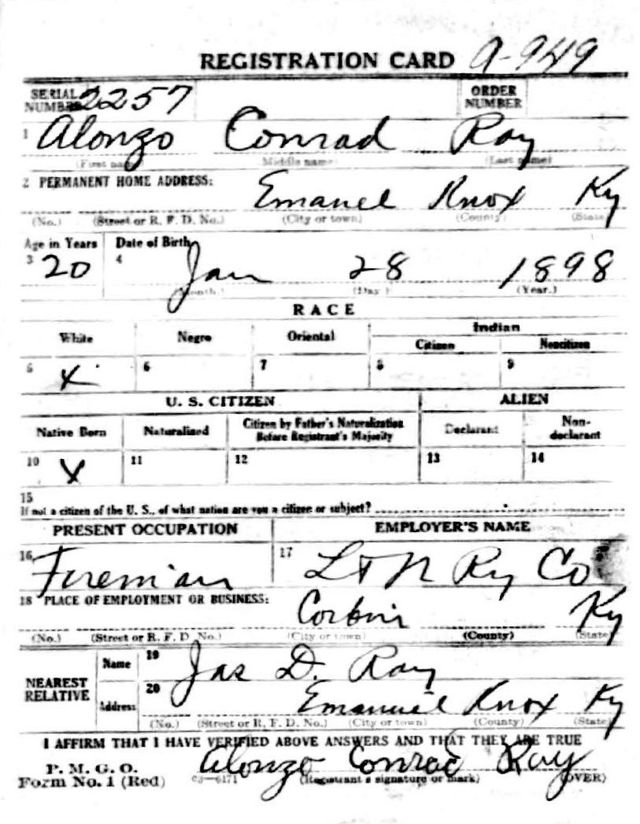 REGISTRATION CARD A-949
SERIAL NUMBER 2257 ORDER NUMBER
1 Alonzo Conrad Ray
(First name) (Middle name) (Last name)
2 PERMANENT HOME ADDRESS:
Emanuel Knox Ky
(No.) (Street or R. F. D. No.) (City or town) (County) (State)
Age in Years Date of Birth
3 20 4 Jan 28 1898
(Month.) (Day.) (Year.)
RACE
White Negro Oriental Indian
Citizen Noncitizen
5 X 6 7 8 9
U. S. CITIZEN ALIEN
Native Born Naturalized Citizen by Father's Naturalization Before Registrant's Majority Declarant Non-declarant
10 X 11 12 13 14
15
If not a citizen of the U. S., of what nation are you a citizen or subject?
PRESENT OCCUPATION EMPLOYER'S NAME
16 Fireman 17 L & N Ry Co
18 PLACE OF EMPLOYMENT OR BUSINESS:
Corbin Ky
(No.) (Street or R. F. D. No.) (City or town) (County) (State)
NEAREST RELATIVE Name 19 Jas D. Ray
Address 20 Emanuel Knox Ky
(No.) (Street or R. F. D. No.) (City or town) (County) (State)
I AFFIRM THAT I HAVE VERIFIED ABOVE ANSWERS AND THAT THEY ARE TRUE
P. M. G. O.
Form No. 1 (Red) c3—6171 Alonzo Conrad Ray
(Registrant's signature or mark) (OVER)